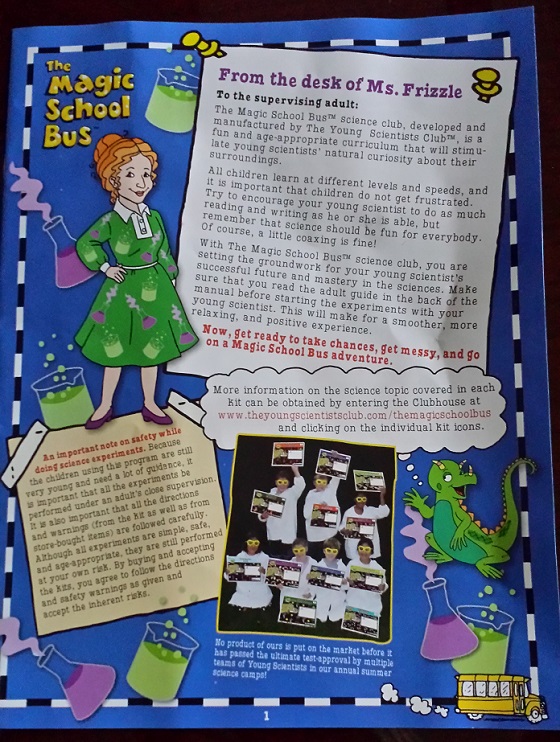 The
Magic
School
Bus™
From the desk of Ms. Frizzle
To the supervising adult:
The Magic School Bus™ science club, developed and
manufactured by The Young Scientists Club™, is a
fun and age-appropriate curriculum that will stimu-
late young scientists' natural curiosity about their
surroundings.
All children learn at different levels and speeds, and
it is important that children do not get frustrated.
Try to encourage your young scientist to do as much
reading and writing as he or she is able, but
remember that science should be fun for everybody.
Of course, a little coaxing is fine!
With The Magic School Bus™ science club, you are
setting the groundwork for your young scientist's
successful future and mastery in the sciences. Make
sure that you read the adult guide in the back of the
manual before starting the experiments with your
young scientist. This will make for a smoother, more
relaxing, and positive experience.
Now, get ready to take chances, get messy, and go
on a Magic School Bus adventure.
More information on the science topic covered in each
kit can be obtained by entering the Clubhouse at
www.theyoungscientistsclub.com/themagicschoolbus
and clicking on the individual kit icons.
An important note on safety while
doing science experiments. Because
the children using this program are still
very young and need a lot of guidance, it
is important that all the experiments be
performed under an adult's close supervision.
It is also important that all the directions
and warnings (from the kit as well as from
store-bought items) are followed carefully.
Although all experiments are simple, safe,
and age-appropriate, they are still performed
at your own risk. By buying and accepting
the kits, you agree to follow the directions
and safety warnings as given and
accept the inherent risks.
No product of ours is put on the market before it
has passed the ultimate test-approval by multiple
teams of Young Scientists in our annual summer
science camps!
1